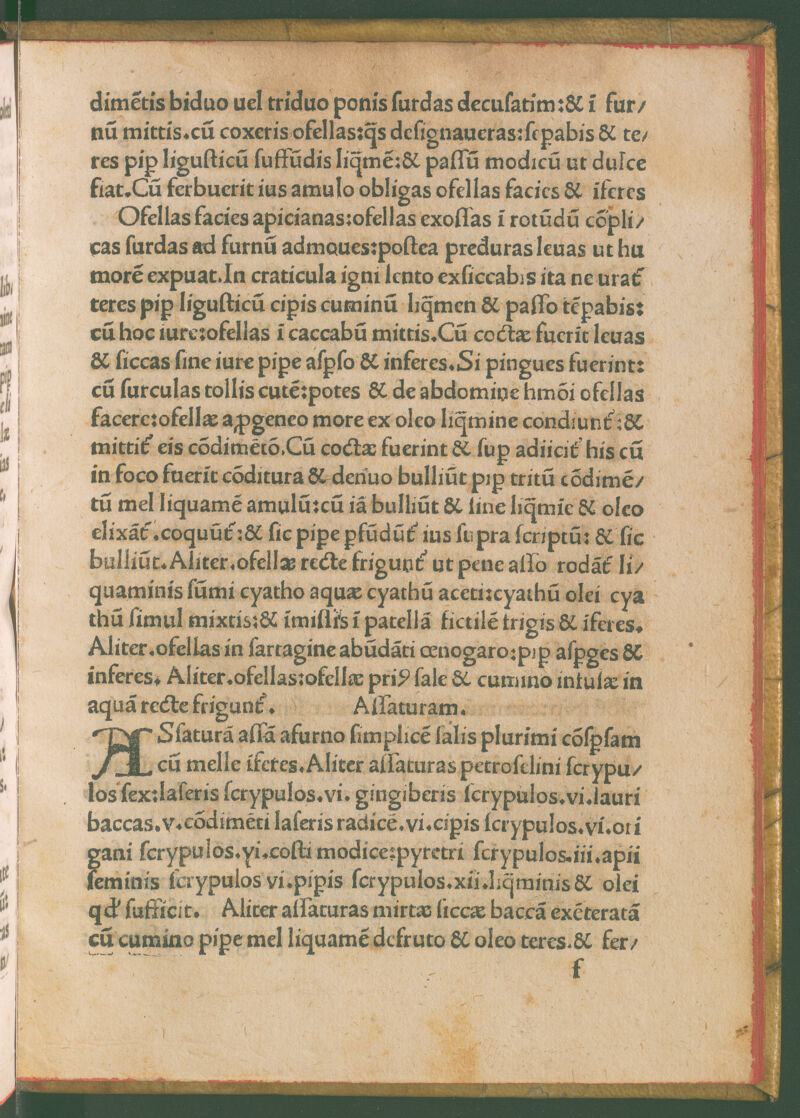 dimētis biduo uel triduo ponis ſurdas decuſatim:& ī fur/
nū mittis.cū coxeris ofellas:q̄s deſignaueras:ſepabis & te/
res pip liguſticū ſuffūdis liq̄mē:& paſſū modicū ut dulce
fiat.Cū ferbuerit ius amulo obligas ofellas facies & īferes
Ofellas facies apicianas:ofellas exoſſas ī rotūdū cōpli/
cas ſurdas ad furnū admoues:poſtea preduras leuas ut hu
morē expuat.In craticula igni lento exſiccabis ita ne urat᷑
teres pip liguſticū cipis cuminū liq̄men & paſſo tēpabis:
cū hoc iure:ofellas ī caccabū mittis.Cū coctæ fuerit leuas
& ſiccas ſine iure pipe aſpſo & inferes.Si pingues fuerint:
cū furculas tollis cutē:potes & de abdomine hmōi ofellas
facere:ofellæ aꝓgeneo more ex oleo liq̄mine condiunt᷑:&
mittit᷑ eis cōdimētō.Cū coctæ fuerint & ſup adiicit᷑ his cū
in foco fuerit cōditura & denuo bulliūt pip tritū cōdimē/
tū mel liquamē amulū:cū iā bulliūt & ſine liq̄mie & oleo
elixāt᷑.coquūt᷑:& ſic pipe pfūdūt᷑ ius ſupra ſcriptū: & ſic
bulliūt.Aliter.ofellæ recte frigunt᷑ ut pene aſſo rodāt᷑ li/
quaminis ſūmi cyatho aquæ cyathū aceti:cyathū olei cya
thū ſimul mixtis:& īmiſſis ī patellā fictilē frigis & īferes.
Aliter.ofellas in ſartagine abūdāti œnogaro:pip aſpges &
inferes. Aliter.ofellas:ofellæ priꝰ ſale & cumino infuſæ in
aquā recte frigunt᷑. Aſſaturam.
ASſaturā aſſā afurno ſimplicē ſalis plurimi cōſpſam
cū melle īferes.Aliter aſſaturas petroſelini ſcrypu/
los ſex:laſeris ſcrypulos.vi. gingiberis ſcrypulos.vi.lauri
baccas.v.cōdimēti laſeris radicē.vi.cipis ſcrypulos.vi.ori
gani ſcrypulos.vi.coſti modice:pyretri ſcrypulos.iii.apii
ſeminis ſcrypulos vi.pipis ſcrypulos.xii.liq̄minis & olei
qd' ſufficit. Aliter aſſaturas mirtæ ſiccæ baccā exēteratā
cū cumino pipe mel liquamē defruto & oleo teres.& fer/
f